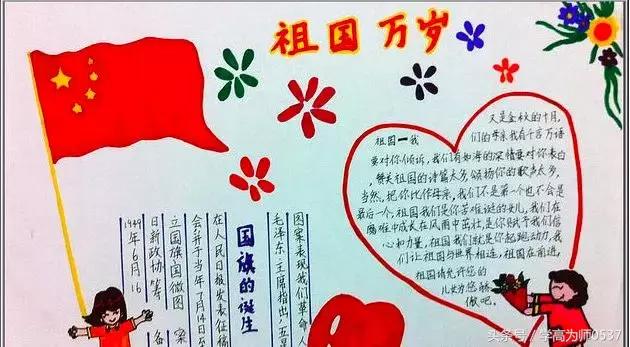 祖国万岁
又是金秋的十月,
祖国一我们的母亲我有千言万语
要对你倾诉,我们有如海的深情要对你表白
,赞美祖国的诗篇太多 颂扬你的歌声太多,
当然,把你比作母亲,我们不是第一个也不会是
最后一个,祖国我们是你苦难诞的女儿,我们在
难中成长在风雨中茁壮,是你赋予我们信
心和力量,祖国我们就是你起跑动力,我
们让祖国与世界相连,祖国在前进,
祖国请允许您的
儿女为您骄
傲吧。
图案表现我们革命人
毛泽东主席指出,五
国旗的诞生
在人民日报发表征稿
会并于当年7月14日至
立国旗国徽图案
日新政协筹备
1949年6月16
头条号/学高为师0537